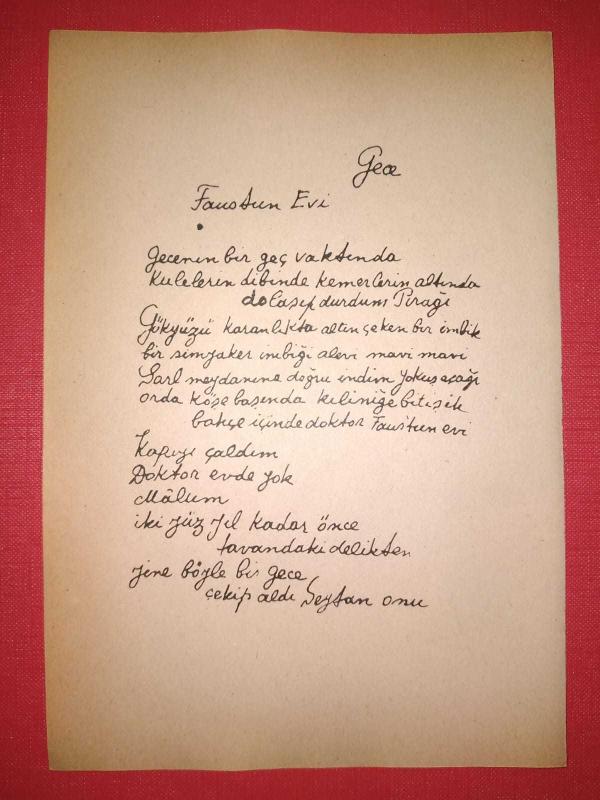 Gece
Faustun Evi
Gecenin bir geç vaktında
Kulelerin dibinde kemerlerin altında
dolaşıp durdum Pırağı
Gökyüzü karanlıkta altın çeken bir imbik
bir simyaker imbiği alevi mavi mavi
Şarl meydanına doğru indim yokuş aşağı
orda köşe başında kiliniğe bitişik
bahçe içinde doktor Faustun evi
Kapıyı çaldım
Doktor evde yok
Mâlum
iki yüz yıl kadar önce
tavandaki delikten
yine böyle bir gece
çekip aldı Şeytan onu